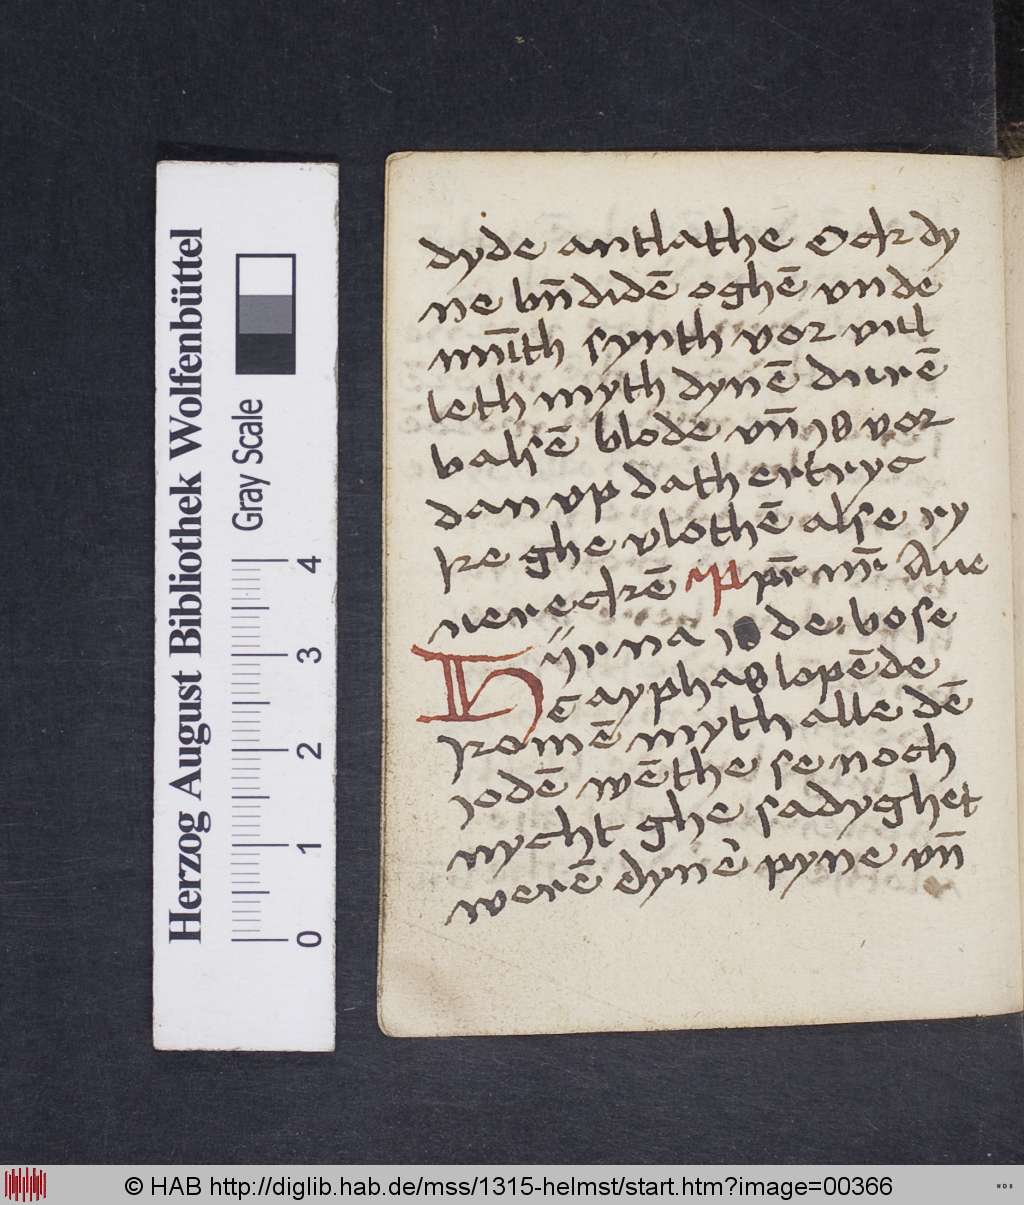 dyde antlathe Ock dy
ne bn̄didē oghē vnde
mūth synth vor vul
leth myth dynē durē
balsē blode vn̄ is vor
dan vp dath ertryc
ke ghe vlothē alse ry
uereckē pr̄ nr̄ Aue
Hyr na is de bose
cayphas lopēde
komē myth alle dē
iodē wēthe se noch
nycht ghe sadyghet
werē dynē pyne vn̄
Herzog August Bibliothek Wolfenbüttel
Gray Scale
0 1 2 3 4
© HAB http://diglib.hab.de/mss/1315-helmst/start.htm?image=00366